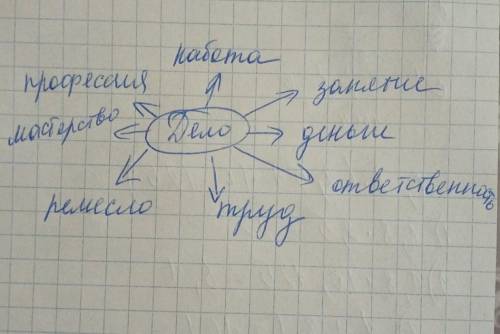 работа
профессия
занятие
мастерство
Дело
деньги
ответственность
ремесло
труд